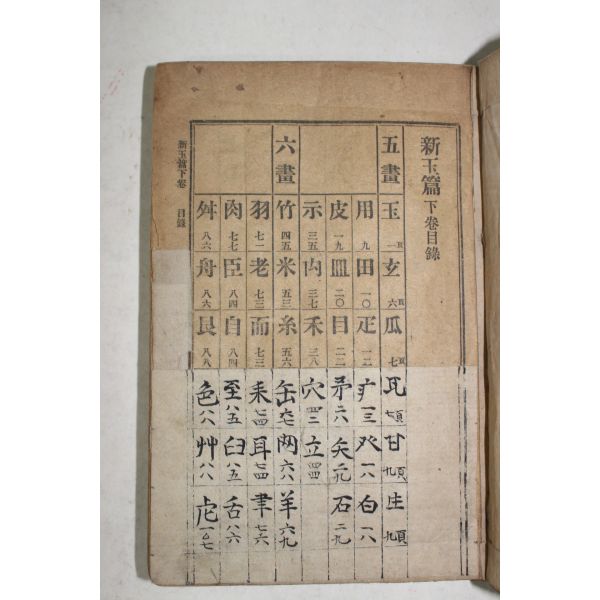 新玉篇下卷目錄
五畫 玉一頁 玄六頁 瓜七頁 瓦七頁 甘九頁 生九頁
用九 田一〇 疋一二 疒一三 癶一八 白一八
皮一九 皿二〇 目二二 矛二八 矢二九 石二九
示三五 禸三七 禾三八 穴四二 立四四
六畫 竹四五 米五三 糸五六 缶六七 网六八 羊六九
羽七一 老七三 而七三 耒七四 耳七四 聿七六
肉七七 臣八四 自八四 至八五 臼八五 舌八六
舛八六 舟八六 艮八八 色八八 艸八八 虍一〇七
新玉篇下卷 目錄